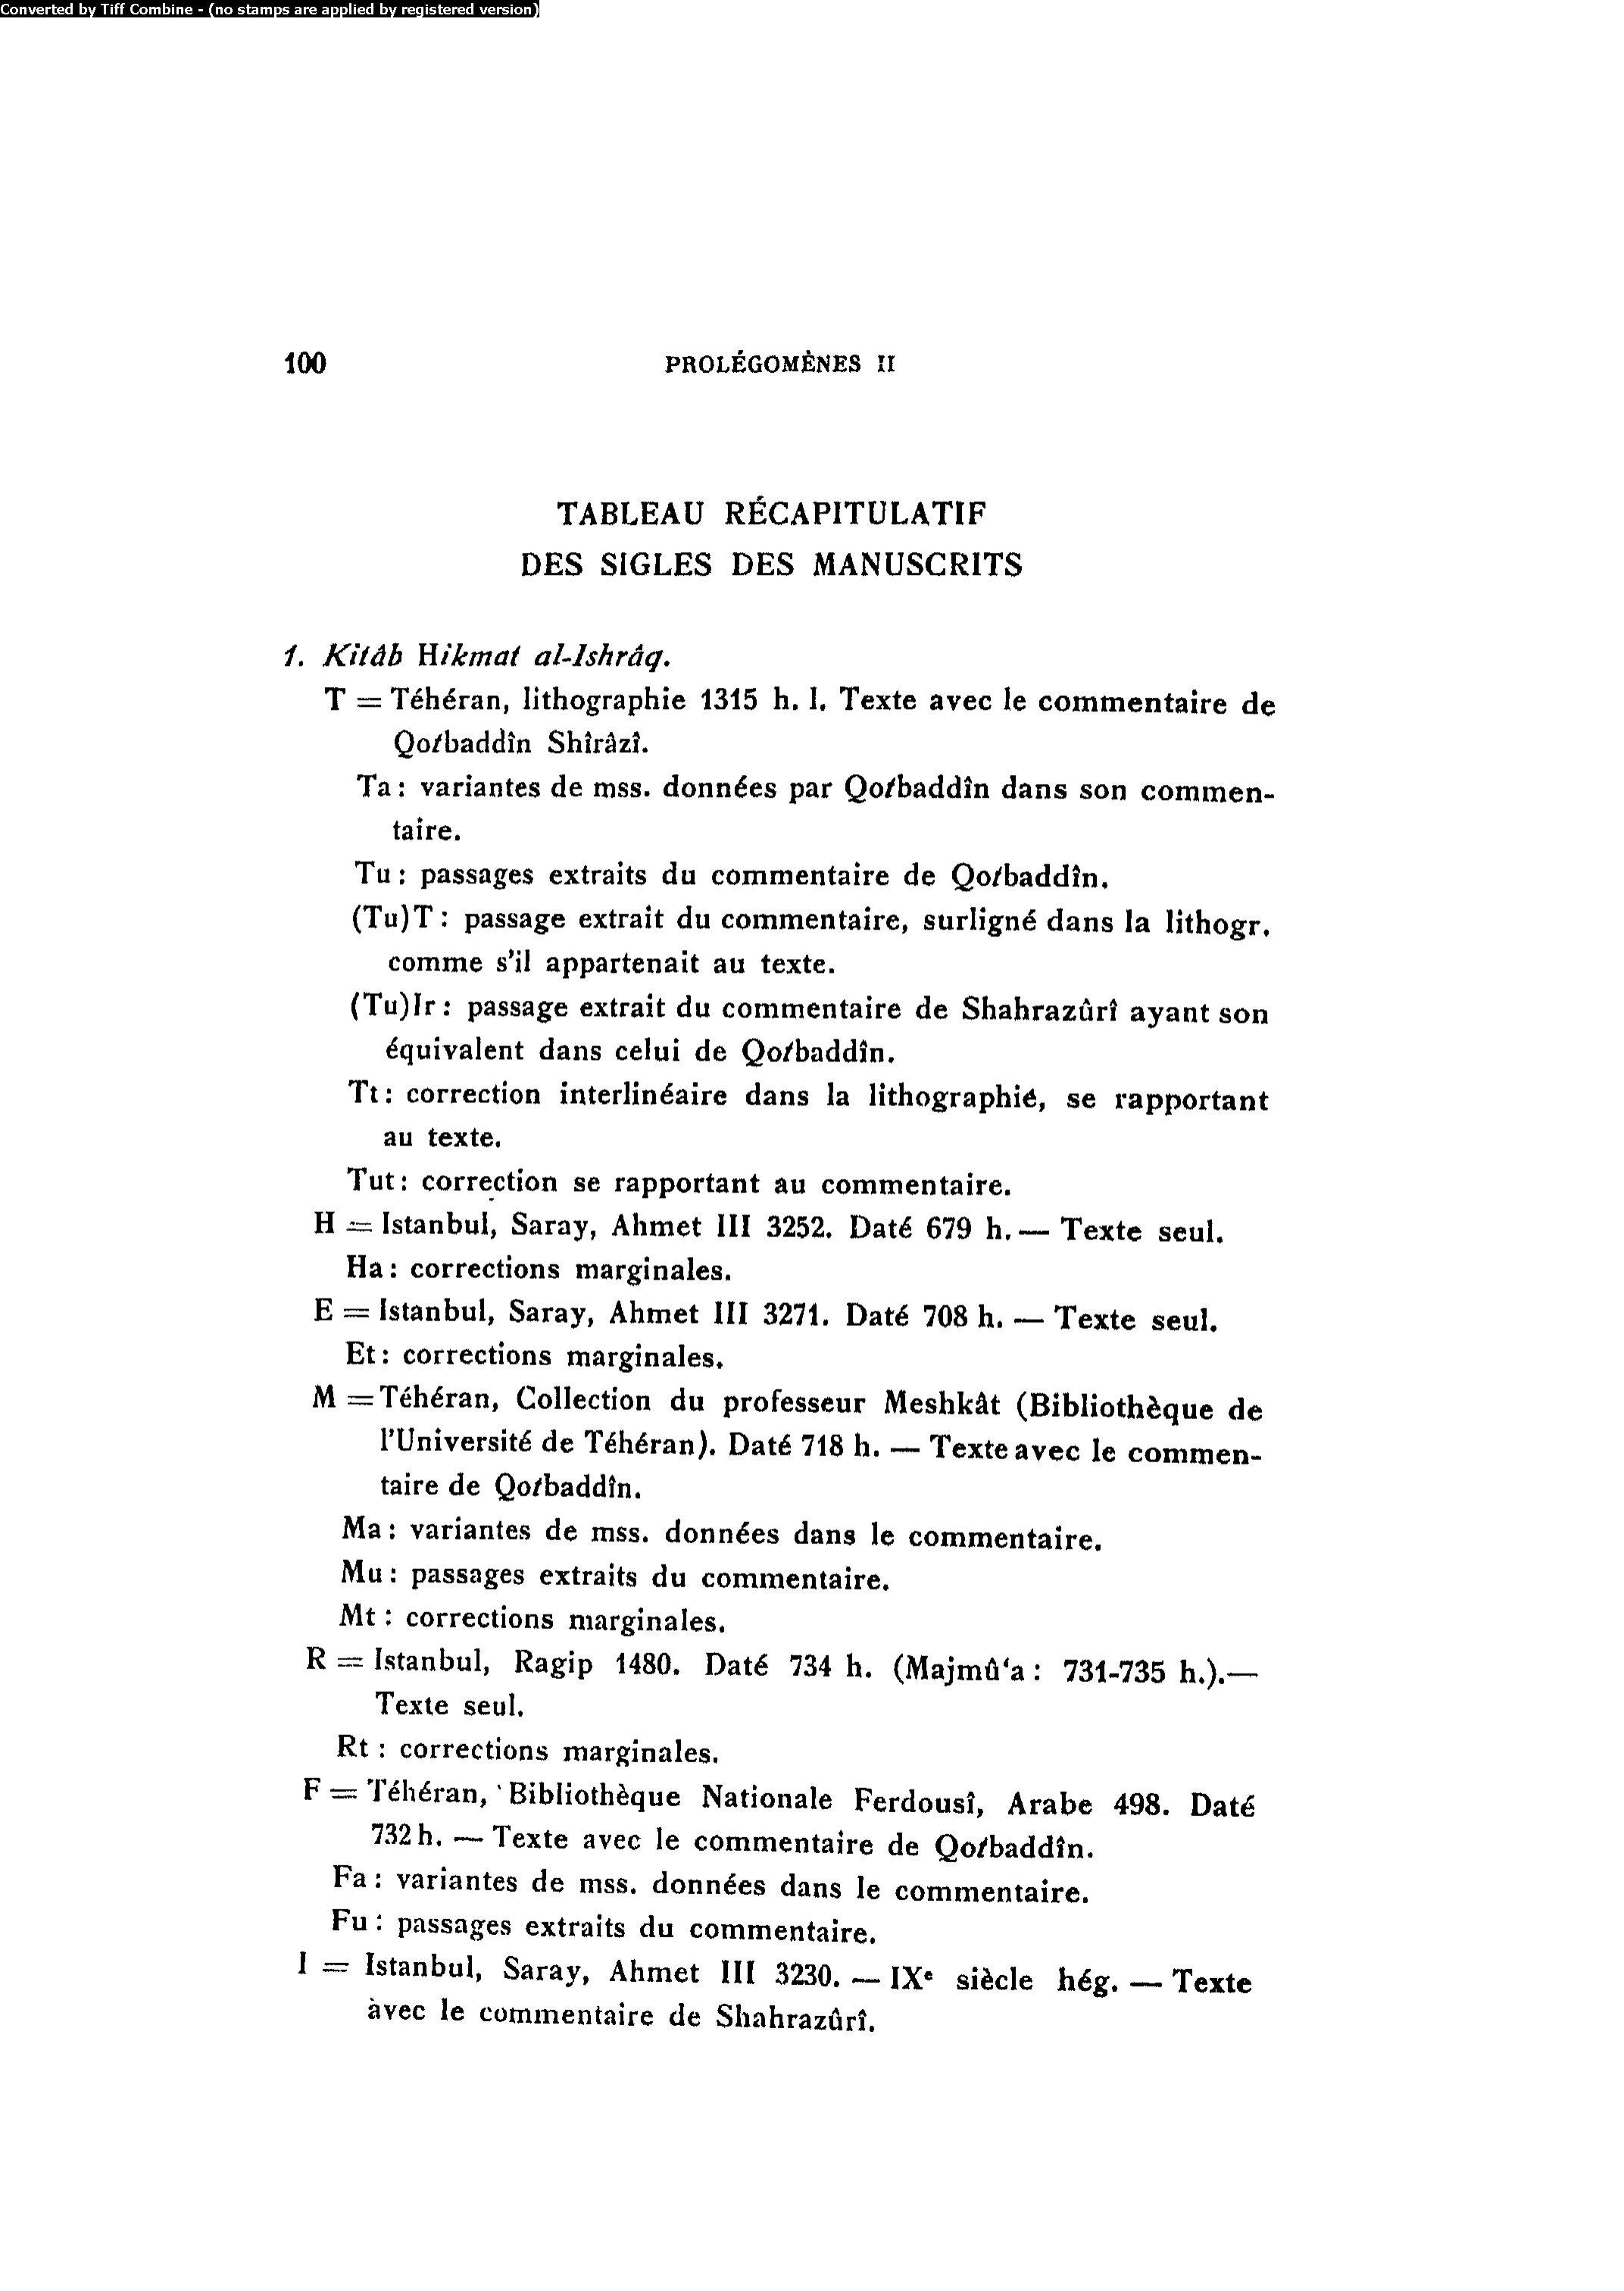 Converted by Tiff Combine - (no stamps are applied by registered version)
100 PROLÉGOMÈNES II
TABLEAU RÉCAPITULATIF
DES SIGLES DES MANUSCRITS
1. Kitâb Hikmat al-Ishrâq.
T = Téhéran, lithographie 1315 h. l. Texte avec le commentaire de
Qotbaddîn Shîrâzî.
Ta : variantes de mss. données par Qotbaddîn dans son commen-
taire.
Tu : passages extraits du commentaire de Qotbaddîn.
(Tu)T : passage extrait du commentaire, surligné dans la lithogr.
comme s'il appartenait au texte.
(Tu)Ir : passage extrait du commentaire de Shahrazûrî ayant son
équivalent dans celui de Qotbaddîn.
Tt : correction interlinéaire dans la lithographie, se rapportant
au texte.
Tut : correction se rapportant au commentaire.
H = Istanbul, Saray, Ahmet III 3252. Daté 679 h. — Texte seul.
Ha : corrections marginales.
E = Istanbul, Saray, Ahmet III 3271. Daté 708 h. — Texte seul.
Et : corrections marginales.
M = Téhéran, Collection du professeur Meshkât (Bibliothèque de
l'Université de Téhéran). Daté 718 h. — Texte avec le commen-
taire de Qotbaddîn.
Ma : variantes de mss. données dans le commentaire.
Mu : passages extraits du commentaire.
Mt : corrections marginales.
R = Istanbul, Ragip 1480. Daté 734 h. (Majmû‘a : 731-735 h.).—
Texte seul.
Rt : corrections marginales.
F = Téhéran, Bibliothèque Nationale Ferdousî, Arabe 498. Daté
732 h. — Texte avec le commentaire de Qotbaddîn.
Fa : variantes de mss. données dans le commentaire.
Fu : passages extraits du commentaire.
I = Istanbul, Saray, Ahmet III 3230. — IXe siècle hég. — Texte
avec le commentaire de Shahrazûrî.